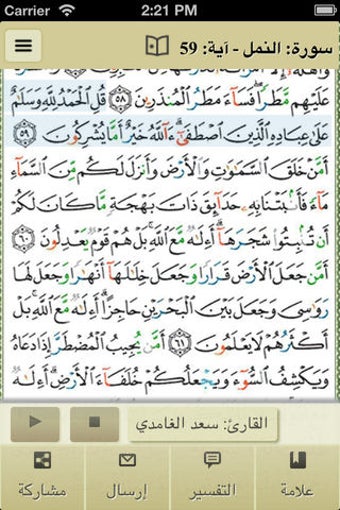 Carrier 2:21 PM
سورة: النمل - آية: 59
عَلَيْهِم مَّطَرًا ۖ فَسَآءَ مَطَرُ ٱلْمُنذَرِينَ ٥٨ قُلِ ٱلْحَمْدُ لِلَّهِ وَسَلَٰمٌ
عَلَىٰ عِبَادِهِ ٱلَّذِينَ ٱصْطَفَىٰٓ ۗ ءَآللَّهُ خَيْرٌ أَمَّا يُشْرِكُونَ ٥٩
أَمَّنْ خَلَقَ ٱلسَّمَٰوَٰتِ وَٱلْأَرْضَ وَأَنزَلَ لَكُم مِّنَ ٱلسَّمَآءِ
مَآءً فَأَنۢبَتْنَا بِهِۦ حَدَآئِقَ ذَاتَ بَهْجَةٍ مَّا كَانَ لَكُمْ
أَن تُنۢبِتُوا۟ شَجَرَهَآ ۗ أَءِلَٰهٌ مَّعَ ٱللَّهِ ۚ بَلْ هُمْ قَوْمٌ يَعْدِلُونَ ٦٠
أَمَّن جَعَلَ ٱلْأَرْضَ قَرَارًا وَجَعَلَ خِلَٰلَهَآ أَنْهَٰرًا وَجَعَلَ لَهَا
رَوَٰسِىَ وَجَعَلَ بَيْنَ ٱلْبَحْرَيْنِ حَاجِزًا ۗ أَءِلَٰهٌ مَّعَ ٱللَّهِ ۚ بَلْ
أَكْثَرُهُمْ لَا يَعْلَمُونَ ٦١ أَمَّن يُجِيبُ ٱلْمُضْطَرَّ إِذَا دَعَاهُ
وَيَكْشِفُ ٱلسُّوٓءَ وَيَجْعَلُكُمْ خُلَفَآءَ ٱلْأَرْضِ ۗ أَءِلَٰهٌ
القارئ: سعد الغامدي
علامة التفسير إرسال مشاركة